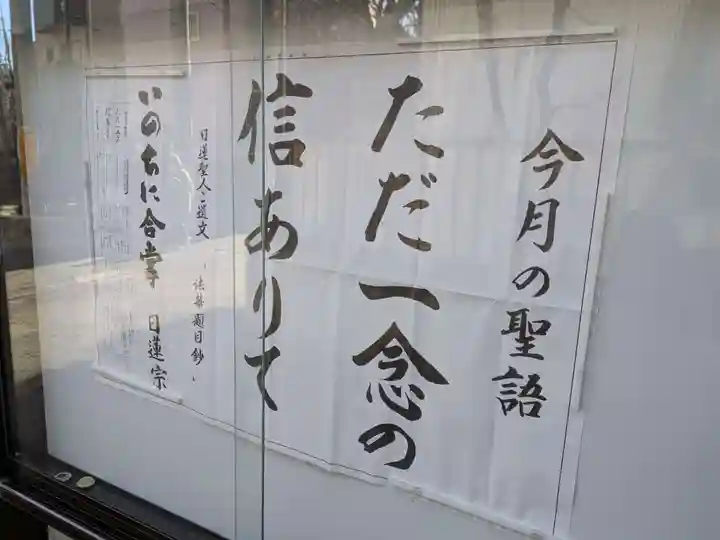 今月の聖語
ただ一念の
信ありて
日蓮聖人ご遺文 「法華題目鈔」
いのちに合掌 日蓮宗